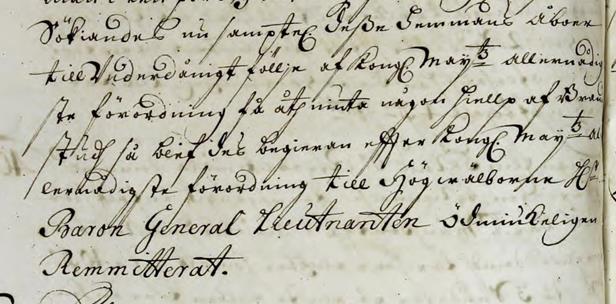 Sökiandes nu sampte. Deße hemmans åboer
till Underdånigt föllje af Kongl. Maytz allernådig
ste förordning få åthniuta någon hielp af
så blef des begieran effter Kongl. Maytz al
lernådigste förordning till Högwälborne H:r
Baron General Lieutnanten ödmiukeligen
Remmitterat.